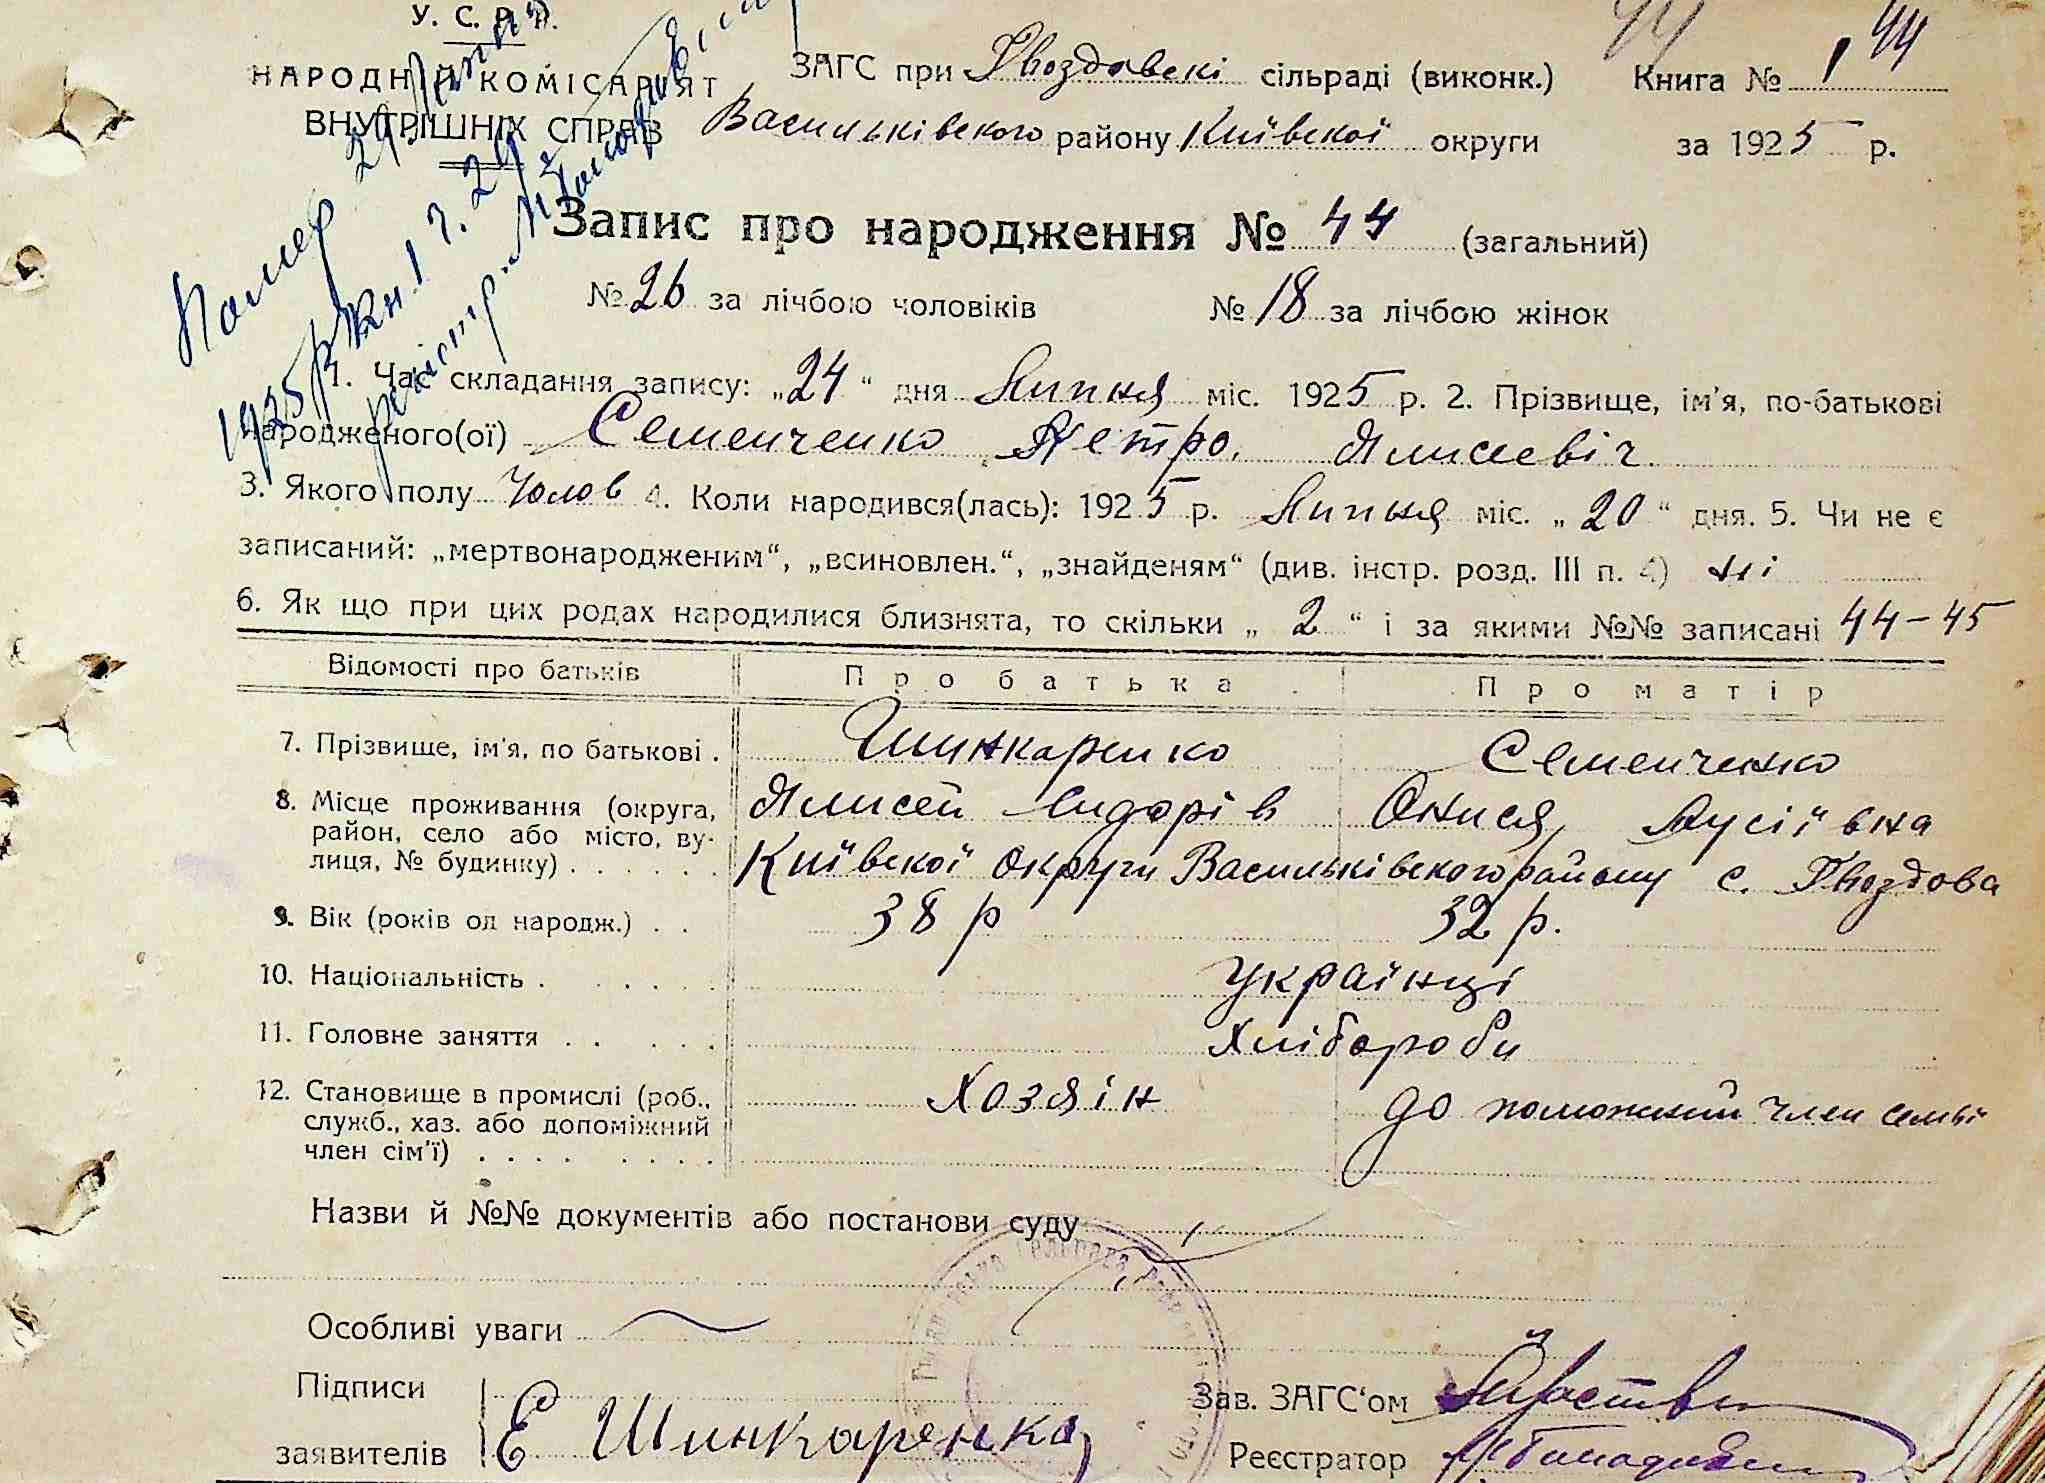 У. С. Р. Р.
НАРОДНІЙ КОМІСАРІЯТ
ВНУТРІШНІХ СПРАВ
44 44
ЗАГС при Гвоздовскі сільраді (виконк.) Книга № 1
Васильківского району Київскої округи за 1925 р.
Помер 29 Липня
1925 р. Кн. 1 ч. 24
реєстр.
Запис про народження № 44 (загальний)
№ 26 за лічбою чоловіків № 18 за лічбою жінок
1. Час складання запису: „24“ дня Липня міс. 1925 р. 2. Прізвище, ім'я, по-батькові
народженого(ої) Семенченко Петро Ялисеевіч.
3. Якого полу Чолов 4. Коли народився(лась): 1925 р. Липня міс. „20“ дня. 5. Чи не є
записаний: „мертвонародженим“, „всиновлен.“, „знайденям“ (див. інстр. розд. III п. 4) ні
6. Як що при цих родах народилися близнята, то скільки „2“ і за якими №№ записані 44-45
Відомості про батьків Про батька Про матір
7. Прізвище, ім'я, по батькові . Шинкаренко Семенченко
8. Місце проживання (округа, Ялисей Сидорів Онися,
район, село або місто, ву-
лиця, № будинку) . . . . . . Київскої Округи Васильківского району с. Гвоздова
9. Вік (років од народж.) . . 38 р 32 р.
10. Національність . . . . . . Українці
11. Головне заняття . . . . . Хлібороби
12. Становище в промислі (роб., Хозяін до поможний член семьі
служб., хаз. або допоміжний
член сім'ї) . . . . . . . .
Назви й №№ документів або постанови суду
Особливі уваги
Підписи
заявителів Е Шинкаренко
Зав. ЗАГС'ом
Реєстратор